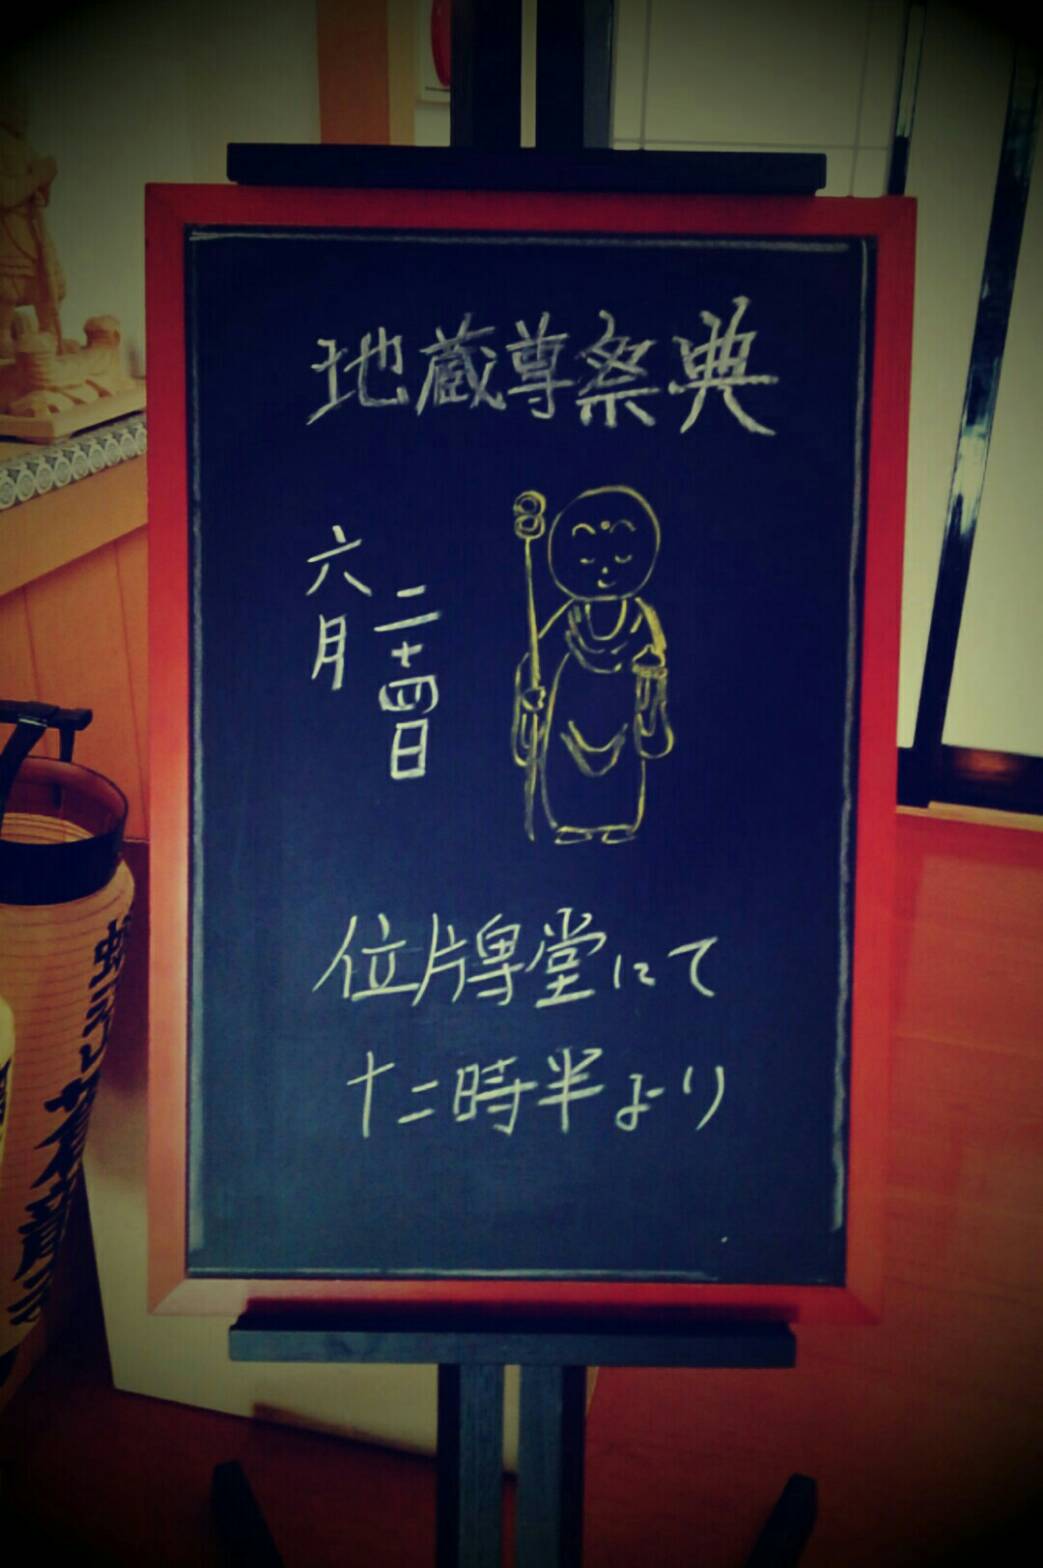 地蔵尊祭典
六月
二十四日
位牌堂にて
十二時半より